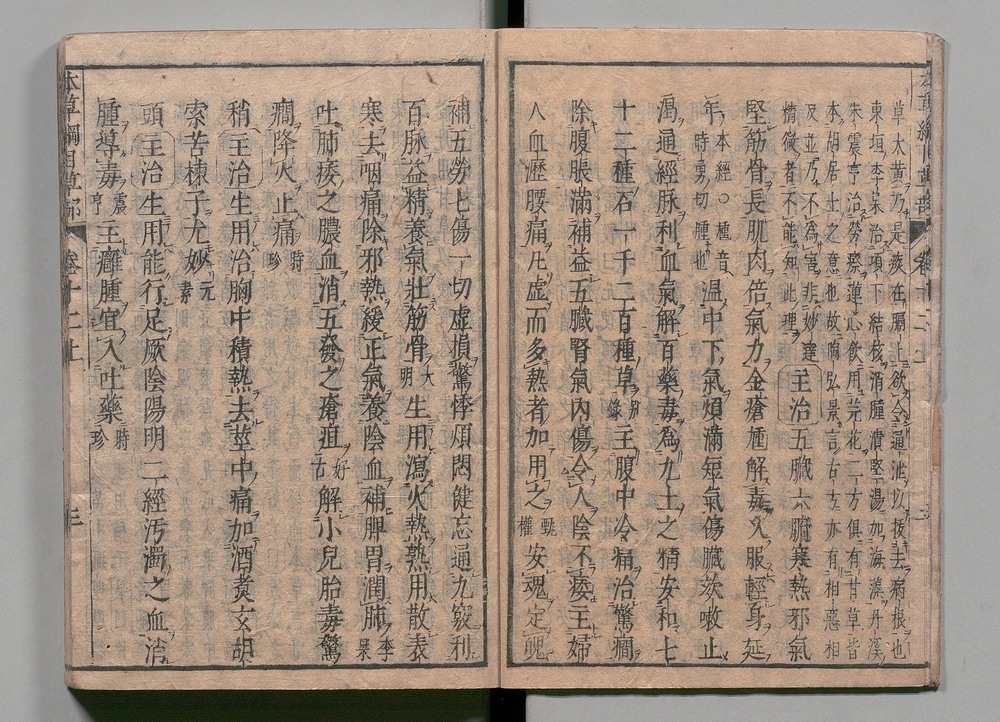 草大黄乃是痰在膈上欲令通泄以拔去病根也
東垣李杲治項下結核消腫潰堅湯加海藻丹溪
朱震亨治勞瘵蓮心飲用芫花二方俱有甘草皆
本胡居士之意也故陶弘景言古方亦有相惡相
反並乃不為害非妙達
精微者不能知此理
主治五臟六腑寒熱邪氣
堅筋骨長肌肉倍氣力金瘡尰解毒久服輕身延
年本經○尰音時勇切腫也溫中下氣煩滿短氣傷臟欬嗽止
渴通經脉利血氣解百藥毒為九土之精安和七
十二種石一千二百種草別錄主腹中冷痛治驚癇
除腹脹滿補益五臟腎氣內傷令人陰不痿主婦
人血瀝腰痛凡虛而多熱者加用之甄權安魂定魄
補五勞七傷一切虛損驚悸煩悶健忘通九竅利
百脉益精養氣壯筋骨大明生用瀉火熱熟用散表
寒去咽痛除邪熱緩正氣養陰血補脾胃潤肺李杲
吐肺痿之膿血消五發之瘡疽好古解小兒胎毒驚
癇降火止痛時珍
稍主治生用治胸中積熱去莖中痛加酒煑玄胡
索苦楝子尤妙元素
頭主治生用能行足厥陰陽明二經汚濁之血消
腫導毒震亨主癰腫宜入吐藥時珍
本草綱目草部 卷十二上 三